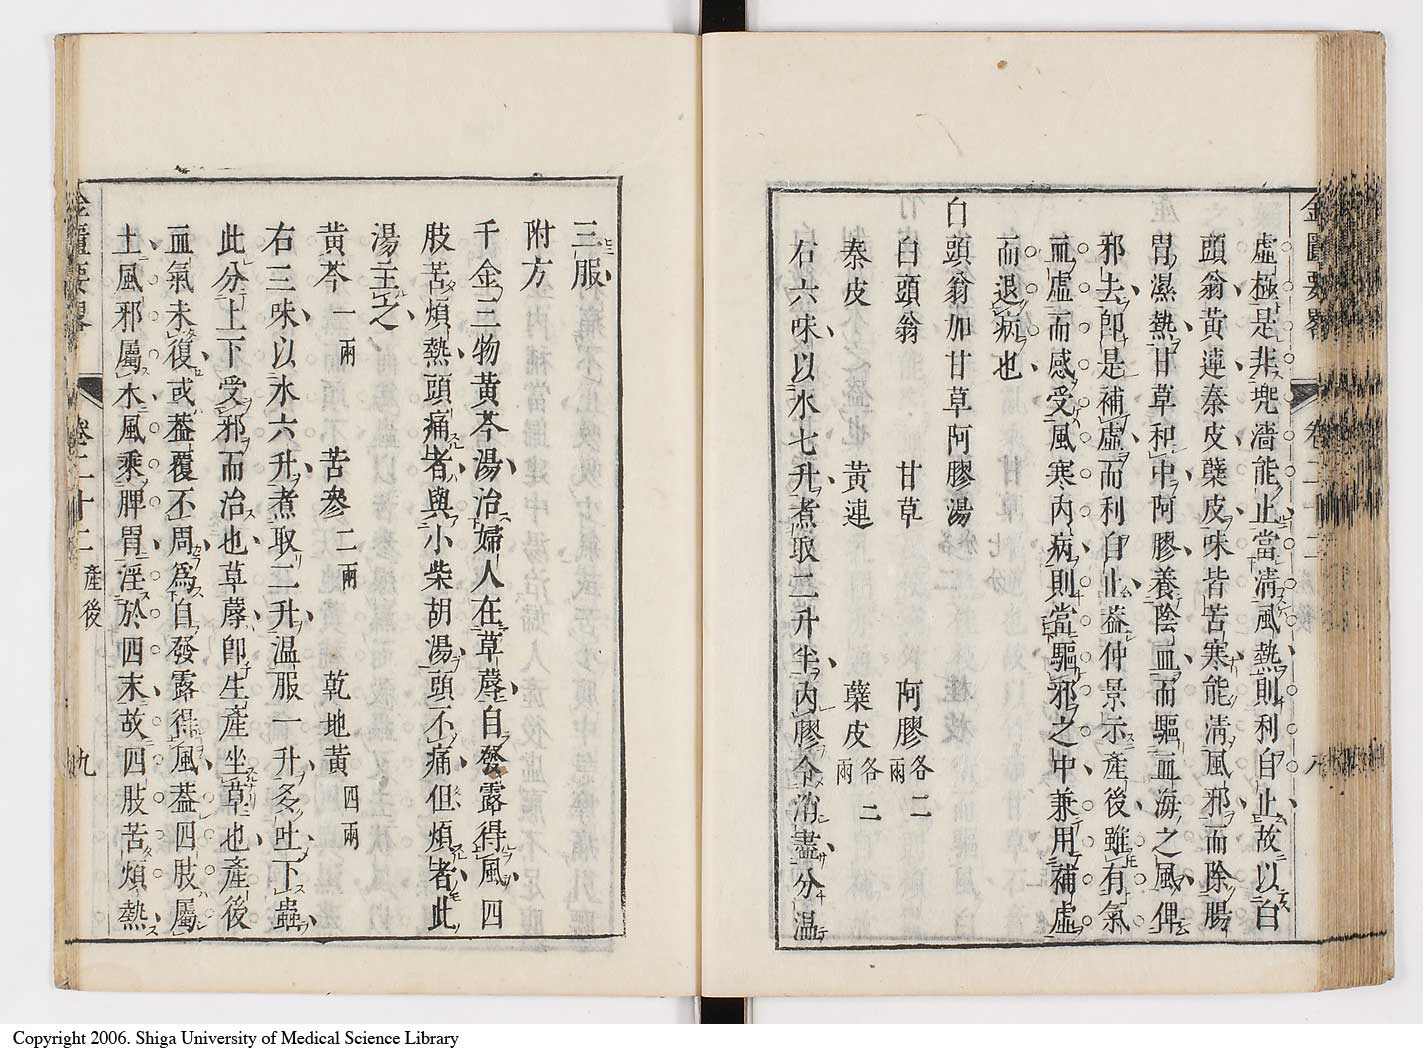 虛極是非兜濇能止當淸風熱則利自止故以白
頭翁黃連秦皮蘗皮味皆苦寒能淸風邪而除腸
胃濕熱甘草和中阿膠養陰血而驅血海之風俾
邪去卽是補虛而利自止益仲景示產後雖有氣
血虛而感受風寒內病則當驅邪之中兼用補虛
而退病也
白頭翁加甘草阿膠湯
白頭翁 甘草 阿膠各二兩
秦皮 黃連 蘗皮各二兩
右六味以水七升煮取二升半內膠令消盡分溫
三服
附方
千金三物黃芩湯治婦人在草蓐自發露得風四
肢苦煩熱頭痛者與小柴胡湯頭不痛但煩者此
湯主之
黃芩一兩 苦參二兩 乾地黃四兩
右三味以水六升煮取二升溫服一升多吐下蟲
此分上下受邪而治也草蓐卽生產坐草也產後
血氣未復或蓋覆不周爲自發露得風蓋四肢屬
土風邪屬木風乘脾胃淫於四末故四肢苦煩熱
金匱要畧 卷二十二 產後 九